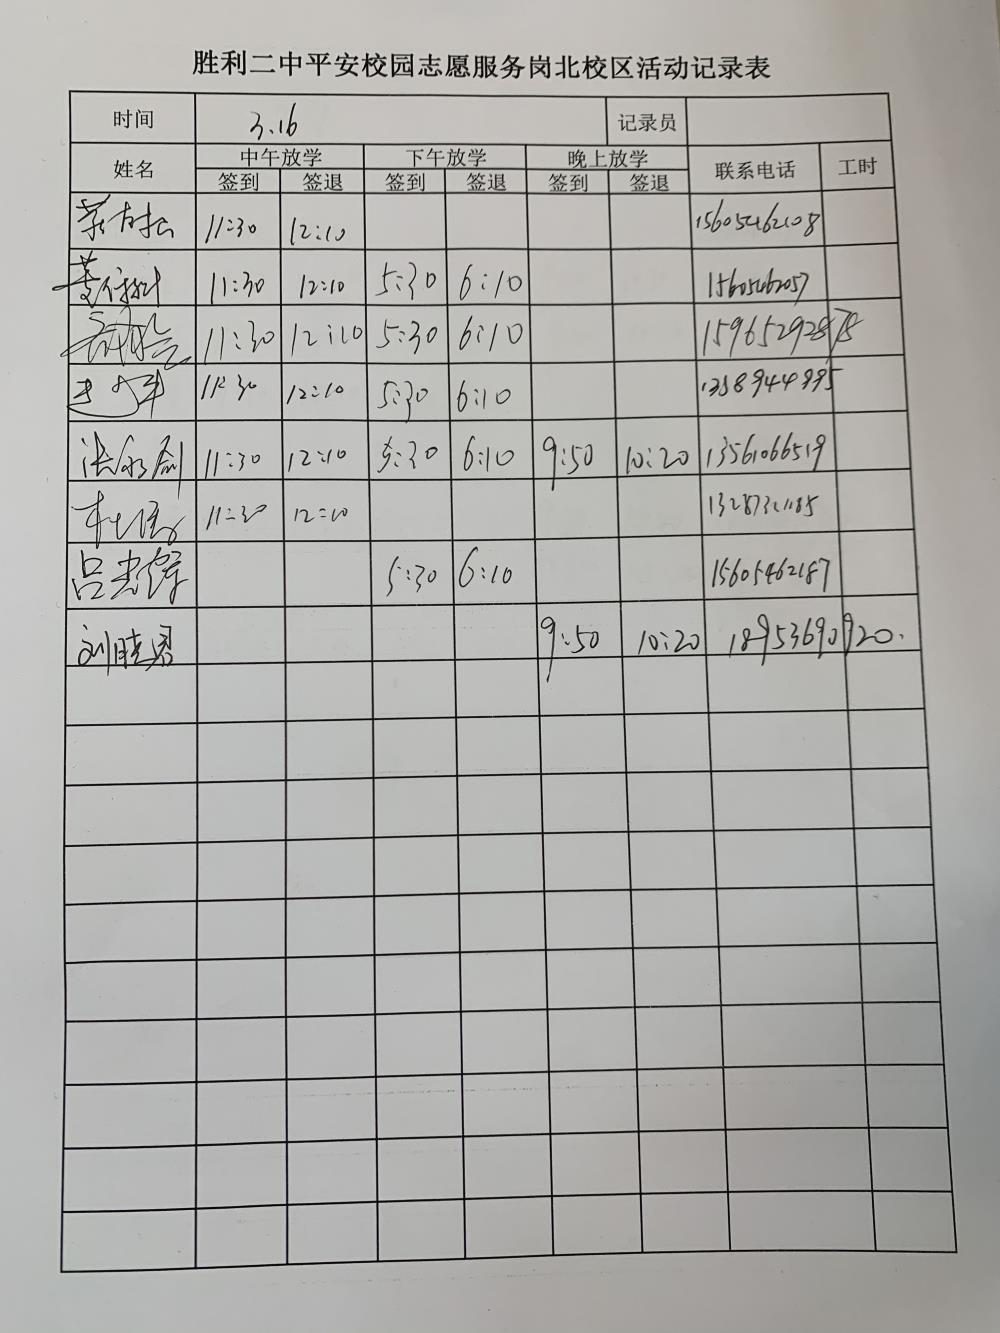 胜利二中平安校园志愿服务岗北校区活动记录表
时间 3.16 记录员
姓名 中午放学 下午放学 晚上放学 联系电话 工时
签到 签退 签到 签退 签到 签退
11:30 12:10 15605462108
11:30 12:10 5:30 6:10
11:30 12:10 5:30 6:10 15965292878
11:30 12:10 5:30 6:10
张永剑 11:30 12:10 5:30 6:10 9:50 10:20 13561066519
11:30 12:10
吕光辉 5:30 6:10 15605462187
刘晓君 9:50 10:20 18953690920.